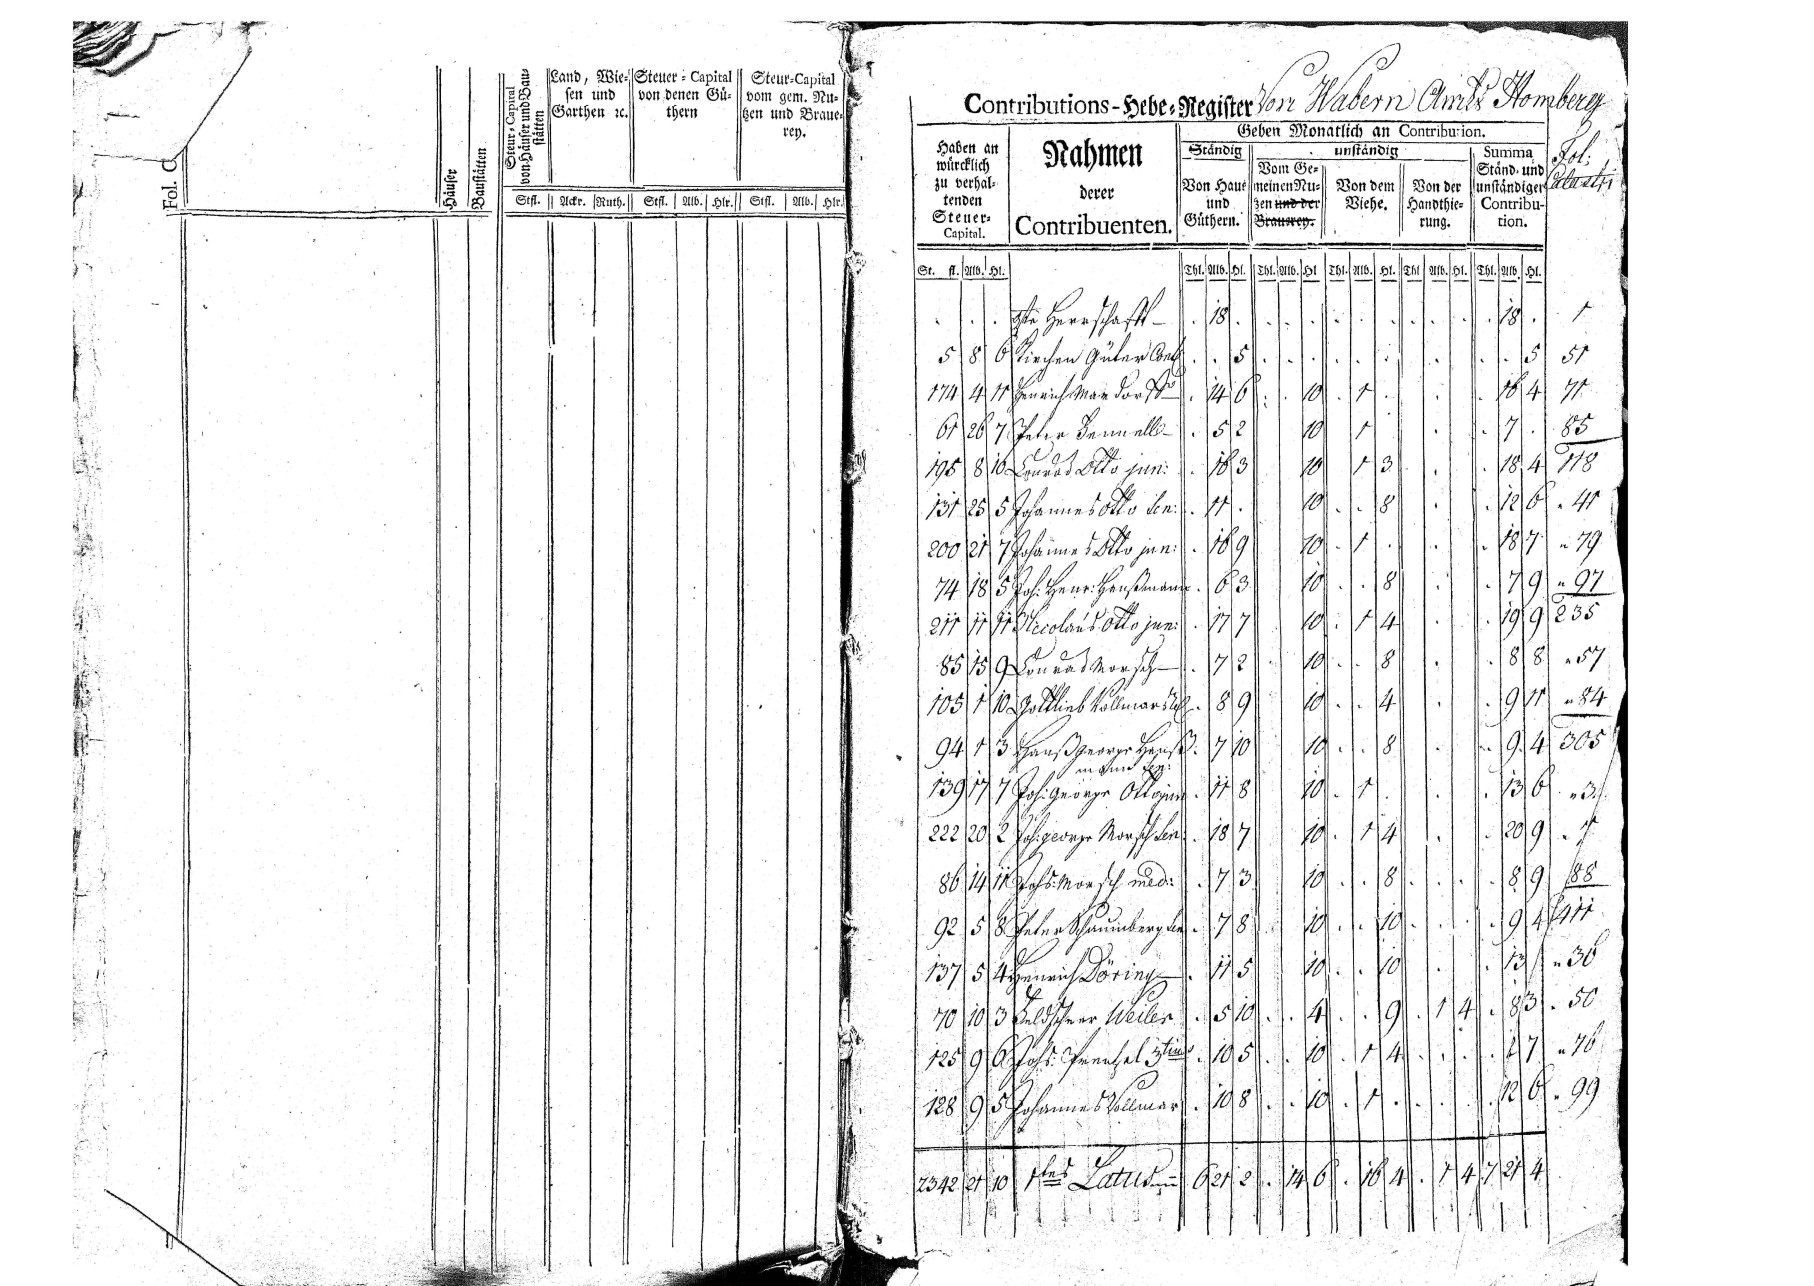 Fol. C
Häuser
Baustätten
Steur-Capital von Häuser und Bau-stätten
Land, Wie-
sen und
Garthen ꝛc.
Steuer-Capital
von denen Gü-
thern
Steur-Capital
vom gem. Nu-
tzen und Braue-
rey.
Stfl. Ackr. Ruth. Stfl. Alb. Hlr. Stfl. Alb. Hlr.
Contributions-Hebe-Register Von Wabern Amts Homberg
Haben an
würcklich
zu verhal-
tenden
Steuer-
Capital.
Nahmen
derer
Contribuenten.
Geben Monatlich an Contribution.
Ständig
unständig
Von Hauß
und
Güthern.
Vom Ge-
meinen Nu-
zen und der
Brauerey.
Von dem
Viehe.
Von der
Handthie-
rung.
Summa
Ständ. und
unständiger
Contribu-
tion.
Fol:
Catastri
St. fl. Alb. Hl. Thl. Alb. Hl. Thl. Alb. Hl Thl. Alb. Hl. Thl Alb. Hl. Thl. Alb. Hl.
. . . gste Herrschafft . 18 . . . . . . . . . . . 18 . 1
5 8 6 Kirchen Güter . . 5 . . . . . . . . . . . 5 51
174 4 11 Henrich . 14 6 . . 10 . 1 . . . 16 4 71
61 26 7 Peter . 5 2 10 1 . . 7 . 85
195 8 10 Conrad Otto jun: . 16 3 10 . 1 3 . . 18 4 118
131 25 5 Johannes Otto Sen: . 11 . 10 . . 8 . . 12 6 " 41
200 21 7 Johannes Otto jun: . 16 9 10 . 1 . . . 18 7 " 79
74 18 5 Joh: Henr: Henßmann . 6 3 10 . . 8 . . 7 9 " 97
211 11 11 Nicolaus Otto jun: . 17 7 10 . 1 4 . . 19 9 235
85 15 9 Conrad Morsch . 7 2 10 . . 8 . . 8 8 " 57
105 1 10 Gottlieb Vollmar . 8 9 10 . . 4 . . 9 11 " 84
94 1 3 Hanß George Henß . 7 10 10 . . 8 . . 9 4 305
mann Sen:
139 17 7 Joh: George Otto jun . 11 8 10 . 1 . . . 13 6 " 3
222 20 2 Joh: george Morsch Sen . 18 7 10 . 1 4 . . 20 9
86 14 11 Johs: Morsch med: . 7 3 10 . . 8 . . 8 9 88
92 5 8 Peter Schaumberg Sen . 7 8 10 . . 10 . . 9 4 411
137 5 4 Henrich Döring . 11 5 10 . . 10 . . 13 " 36
70 10 3 Feldscheer Weiler . 5 10 . . 4 . . 9 . 1 4 . 8 3 . 50
125 9 6 Johs: Frentzel 3tius . 10 5 . . 10 . 1 4 . . . . 7 " 76
128 9 5 Johannes Vollmar . 10 8 . . 10 . 1 . . . . . 12 6 " 99
2342 21 10 1tes Latus 6 21 2 . 14 6 . 16 4 . 1 4 7 21 4